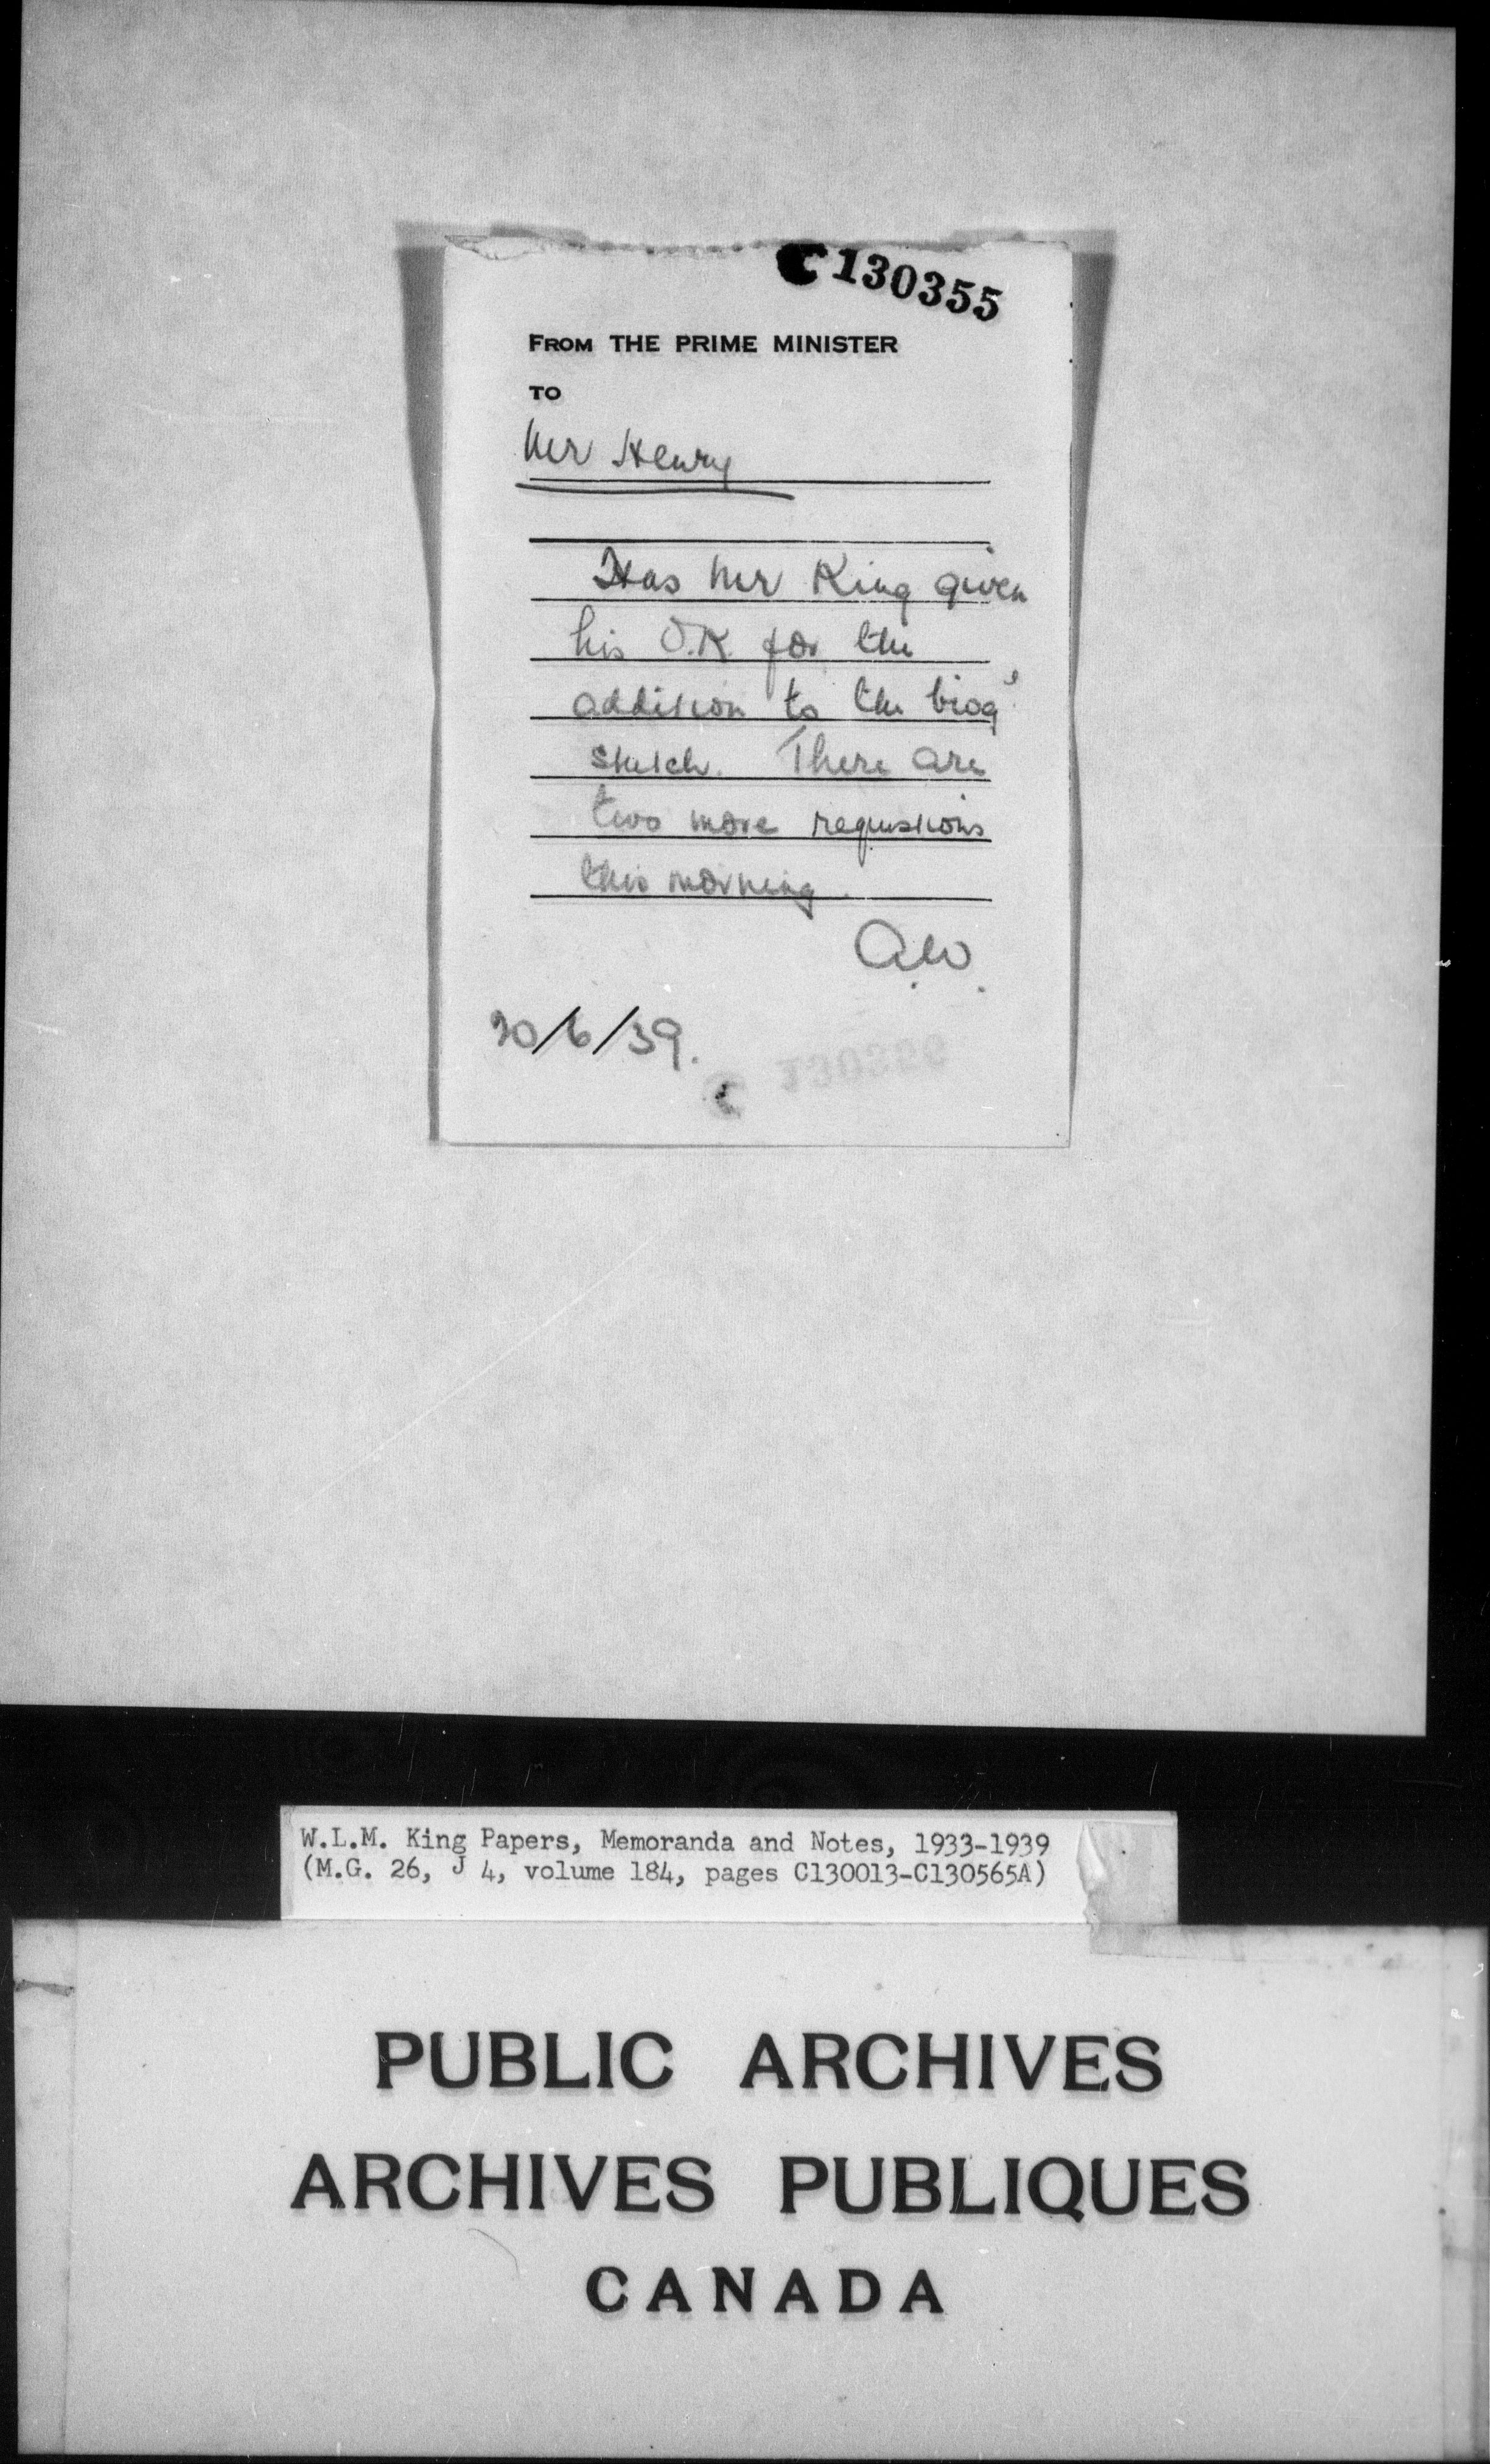 C130355
FROM THE PRIME MINISTER
TO
Mr Henry
Has Mr King given
his O.K. for the
addition to the biog'
sketch. There are
two more requisitions
this morning.
A.W.
20/6/39.
W.L.M. King Papers, Memoranda and Notes, 1933-1939
(M.G. 26, J 4, volume 184, pages C130013-C130565A)
PUBLIC ARCHIVES
ARCHIVES PUBLIQUES
CANADA